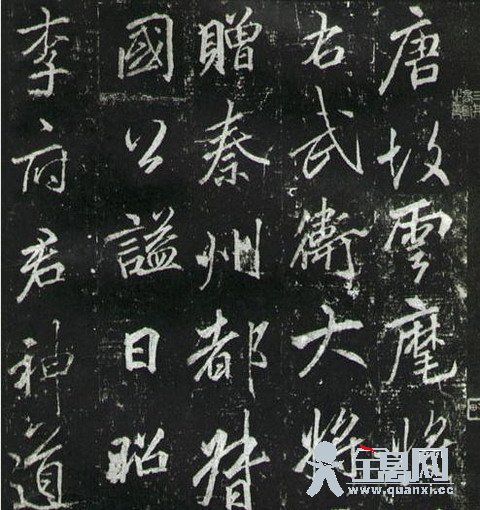 唐故雲麾將
右武衛大將
贈秦州都督
國公謚曰昭
李府君神道
www.quanxi.cc